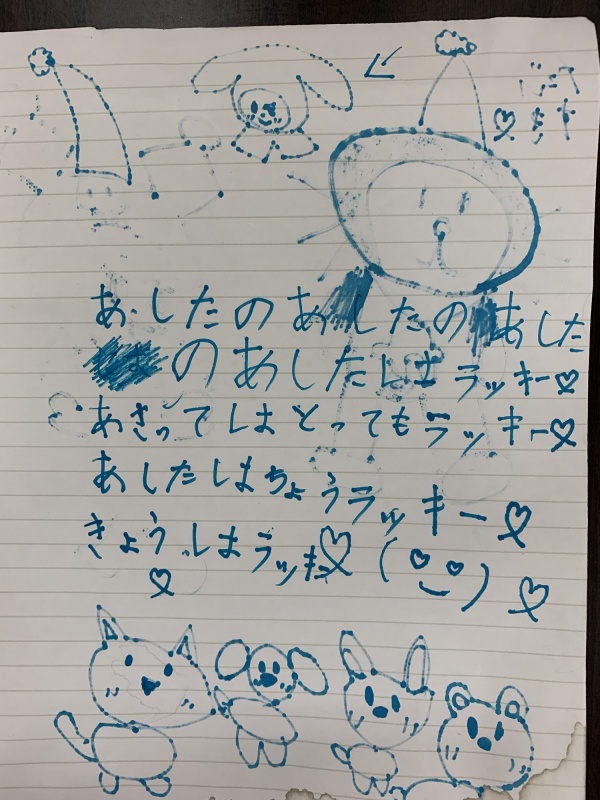 あしたのあしたのあした
のあしたはラッキー♡
あさってはとってもラッキー♡
あしたはちょうラッキー♡
きょうはラッキー♡